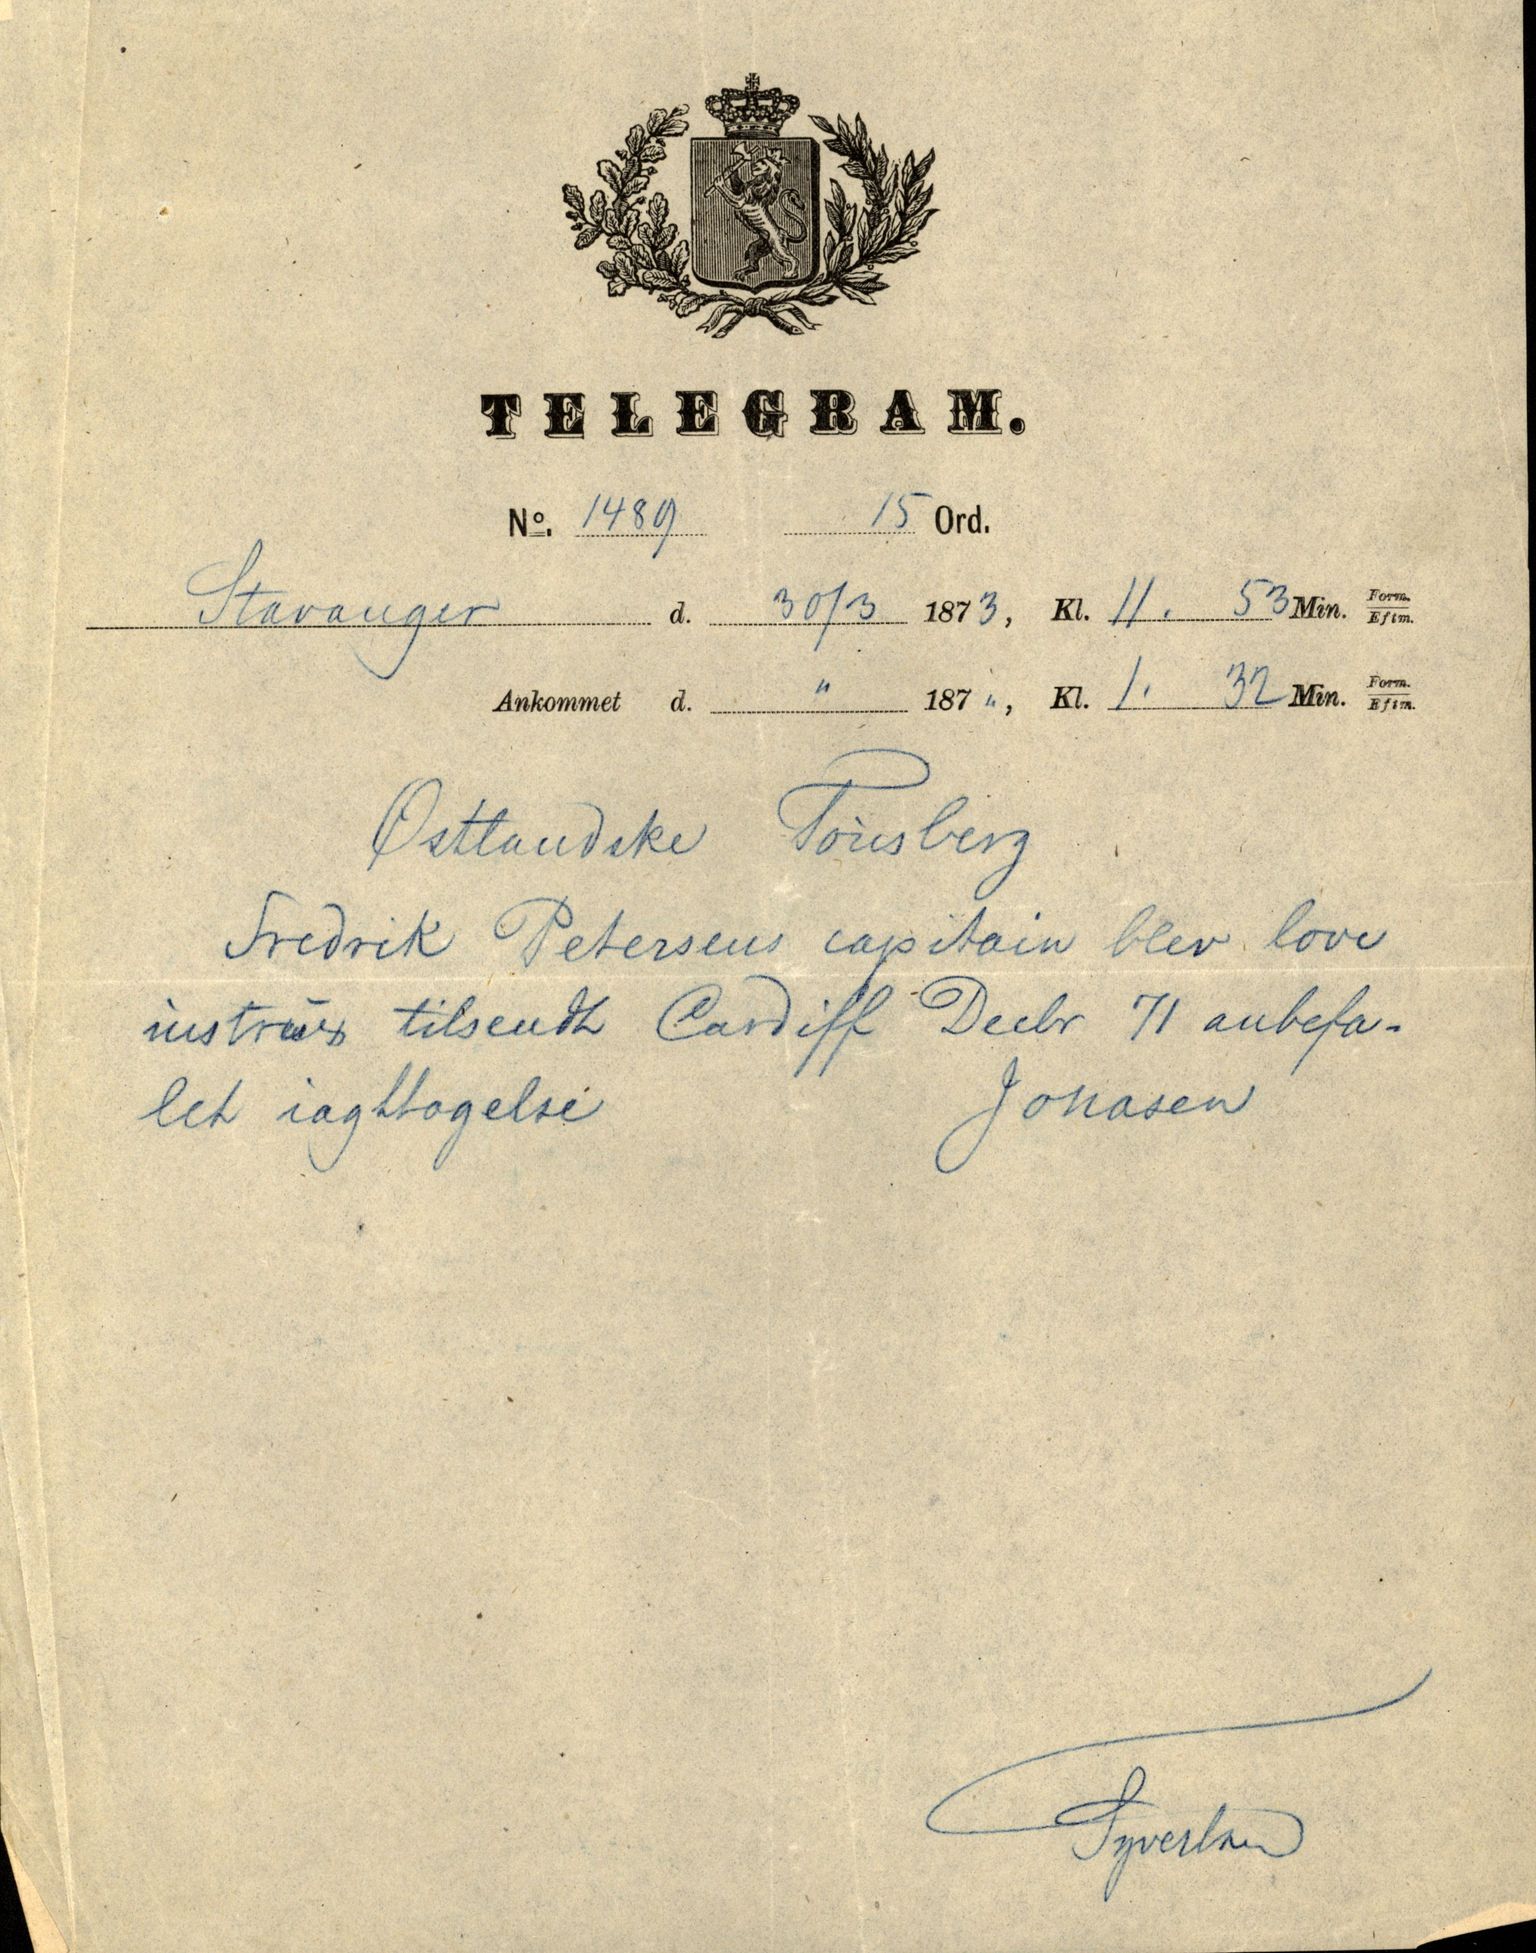 TELEGRAM.
No. 1489 15 Ord.
Stavanger d. 30/3 1873, Kl. 11. 53 Min. Form. Eftm.
Ankommet d. " 187 ", Kl. 1. 32 Min. Form. Eftm.
Østlandske Tönsberg
Fredrik Petersens capitain blev love
tilsendt Cardiff Decbr 71 anbefa-
let iagttagelse Jonasen